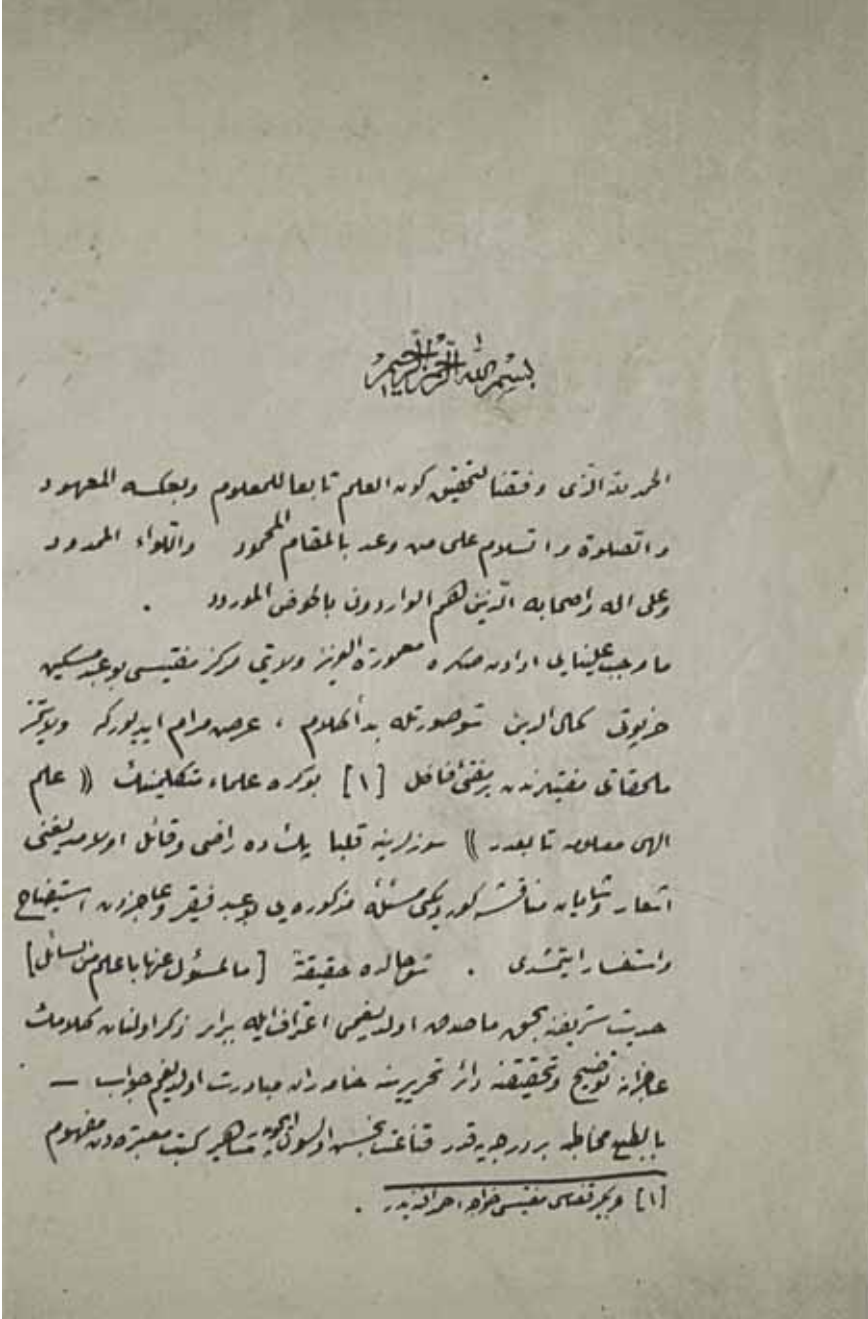 بسم الله الرحمن الرحيم
الحمد لله الذى وفقنا لتحقيق كون العلم تابعا للمعلوم وبعكسه المعهود
والصلوة والسلام على من وعد بالمقام المحمود واللواء الممدود
وعلى اله واصحابه الذين هم الواردون بالحوض المورود .
ما وجب علينايى ادادن صكره معمورة العزيز ولايتى مركز مفتيسى بو عبد مسكين
خرپوتى كمال الدين شوصورتله بدأ كلام ، عرض مرام ايديوركه ولايتمز
ملحقاتى مفتيلرندن بر مفتئ فاضل [١] بوكره علماء متكلمينك (( علم
الهى معلومه تابعدر )) سوزلرينه قلبا پكده راضى وقائل اولامديغنى
اشعار وشايان مناقشه كورديكى مسئلهٔ مذكوره يى بو عبد فقير وعاجزدن استيضاح
واستفسار ايتمشدى . شوحالده حقيقة [ ما المسئول عنها باعلم من السائل ]
حديث شريفنه بحق ماصدق اولديغمى اعترافله برابر ذكر اولنان كلامك
عاجزانه توضيح وتحقيقنه دائر تحريرينه مبادرت اولديغم جواب —
بالطبع مخاطبه بر درجه يه قدر قناعتبخش اولسون ايچون مشاهير كتب معتبره دن مفهوم
[١] مفتيسى خواجه احمد افنديدر .